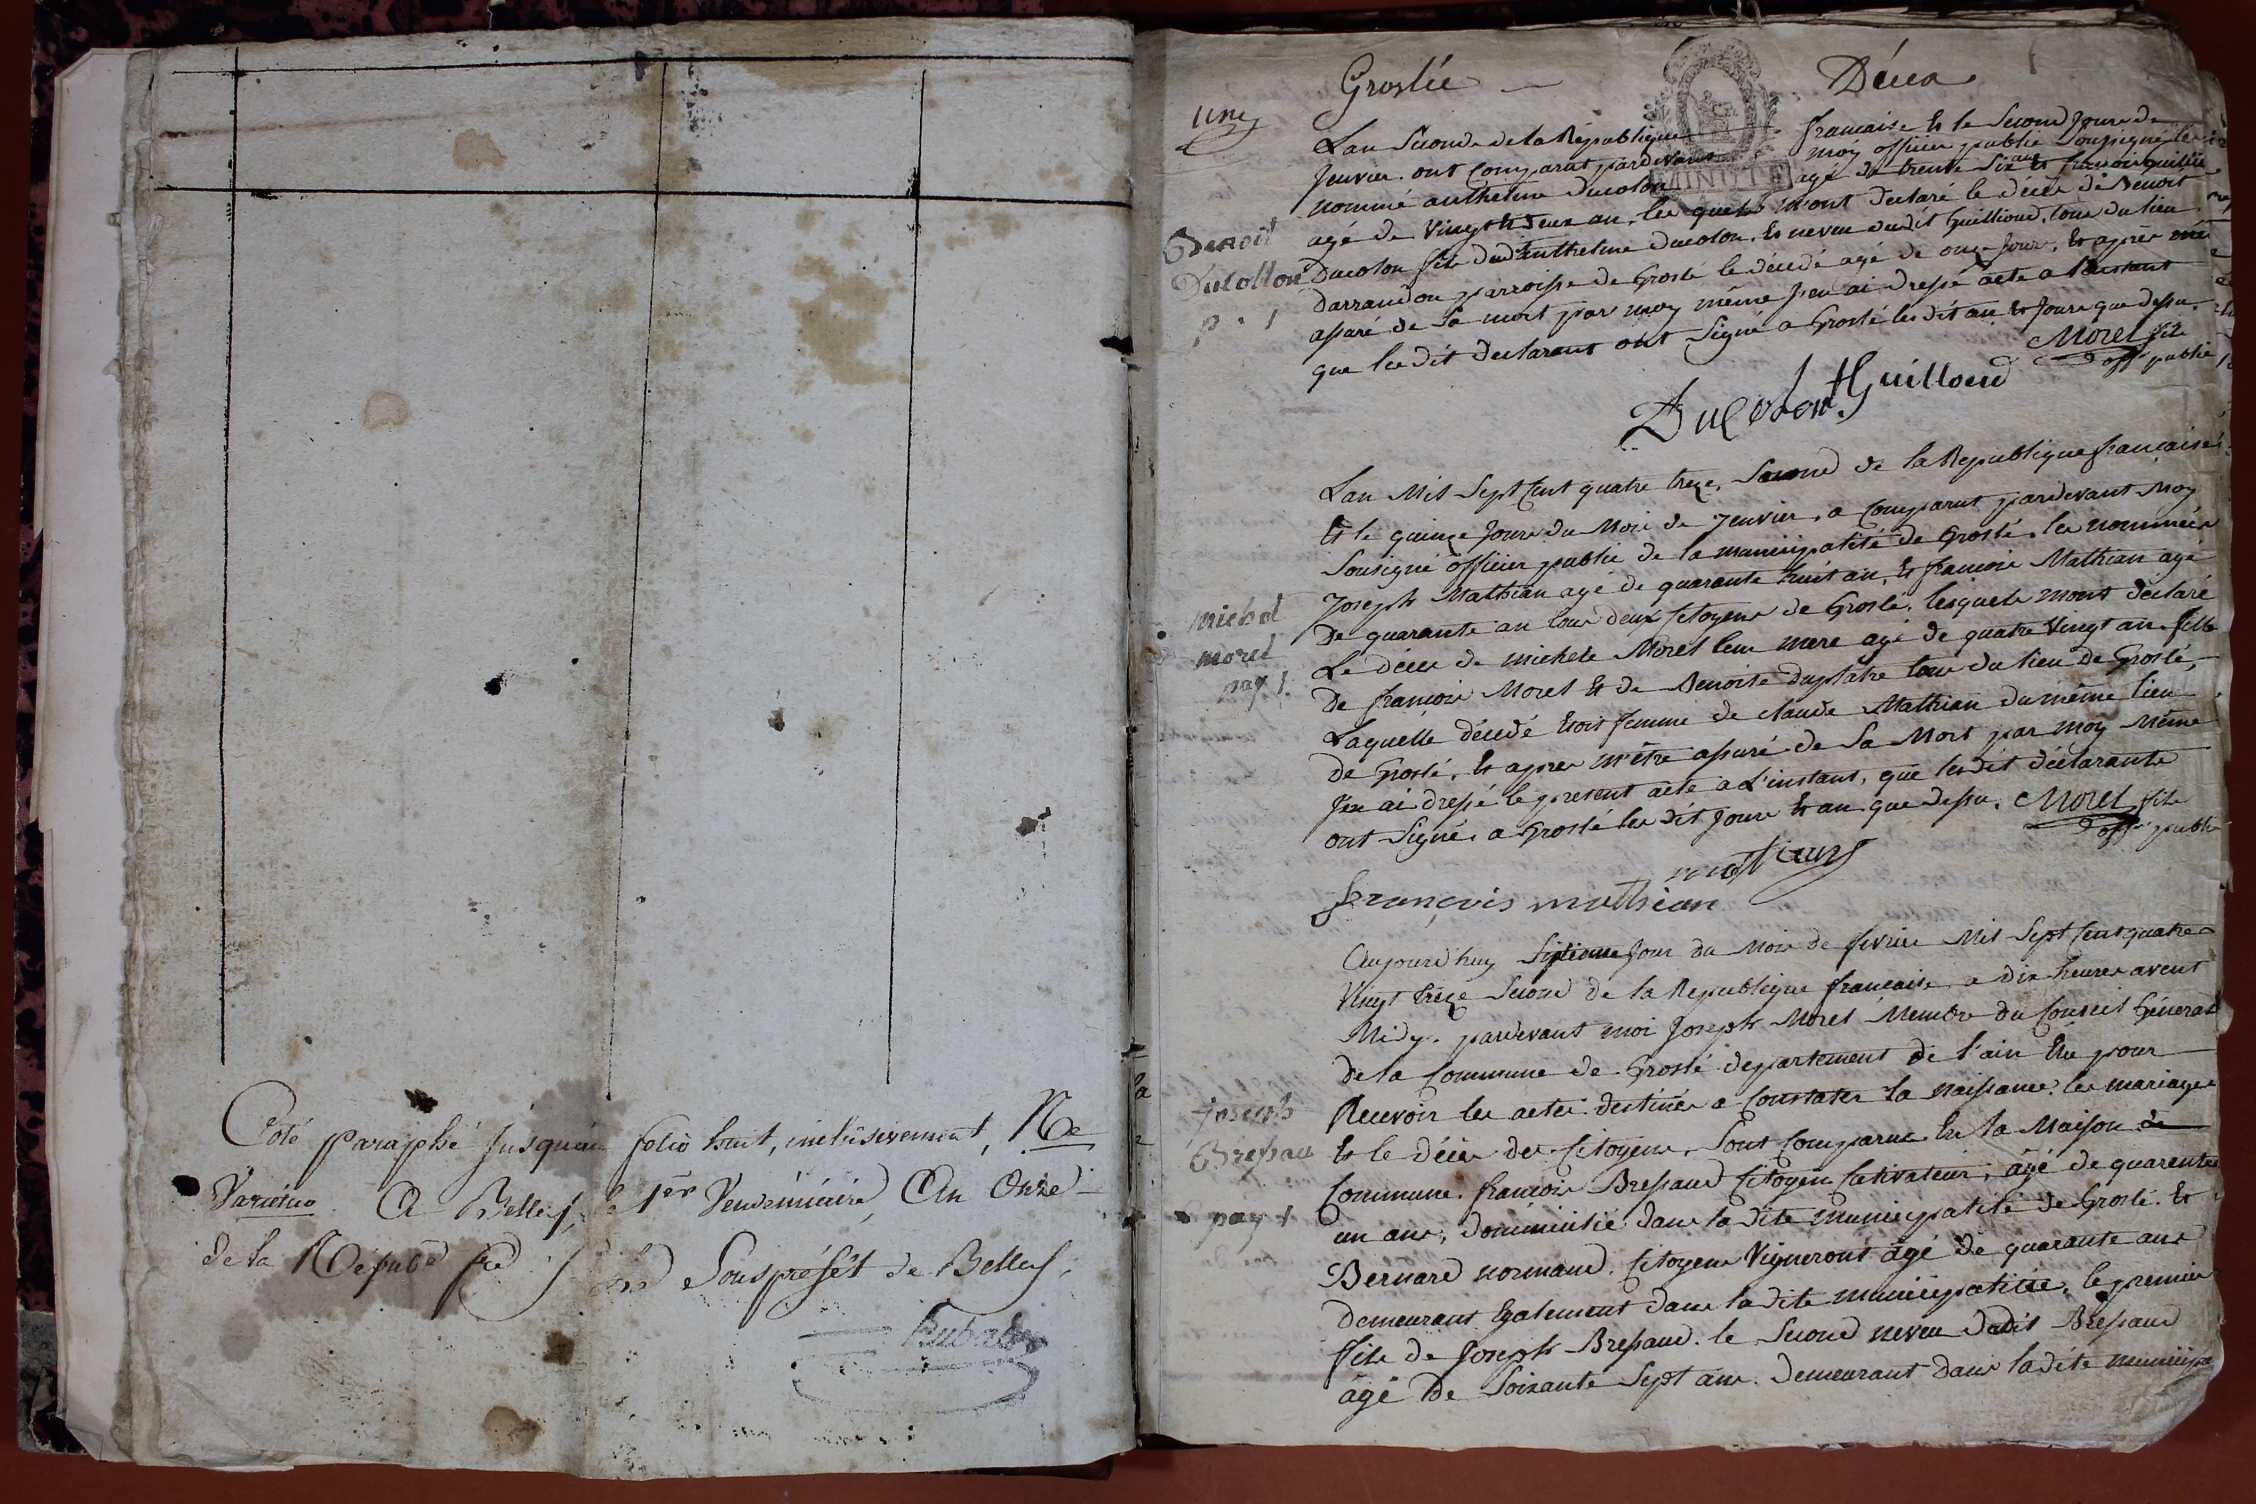 Coté paraphé jusquau folio huit, inclusivement, Ne
Varietur A Belley, le 1er Vendémiaire, An Onze
de la Répube frse Souspréfét de Belley,
une
Groslée Décea
Lan Seconde de la République francaise Et le Second Jour de
Jenvier. ont Comparut pardevant moy officier public Soupsigné le
nommé anthelme Ducolon agé de trente Six ans Et francois guillie
agé de Vingt et deux an, les quels m'ont declaré le decée de Benoit
Ducolon fils dud anthelme Ducolon, Et neveu dudit Guilliond, tous du lieu
darrandon parroisse de Groslé le décédé agé de onze Jour, Et après mêtre
assuré de Sa mort par moy même J'en ai dressé acte a l'instant
que lesdit declarant ont Signé a Groslé les dit an Et Jour que dessu.
Morel fils
off public
Benoit
Ducollon
p. 1
Ducolon Guilloud
Lan Mil Sept Cent quatre treze, Second de la Republique francaise
Et le quinze Jour du Mois de Jenvier, a Comparut pardevant Moy
Sousigné officier public de la municipalité de Groslé. les nommées
Joseph Mathian agé de quarante huit an, Et francois Mathian agé
De quarante an tous deux Citoyens de Groslé. lesquels mont déclaré
Le décée de michele Morel leur mere agé de quatre Vingt an. fille
De francois Morel Et de Benoite duplatre tous du lieu de Groslé,
Laquélle décédé Etoit femme de claude Mathian du même lieu
de Groslé, Et apres m'être assuré de Sa Mort par moy Même
J'en ai dressé le present acte a L'instant, que lesdit déclarants
ont Signé. a Groslé les dit Jour Et an que dessu. Morel fils
off public
michel
morel
pag 1
mathian
françois mathian
Aujourd'huy Septieme Jour du Mois de fevrier Mil Sept Cent quatre
Vingt treize Second de la Republique francaise, a dix heures avent
Midy. pardevant moi Joseph Morel Membre du Conseil Général
de la Commune de Groslé departement de l'ain Elu pour
Recevoir les actes destinés a Constater la naissance. les mariages
Et le décée des Citoyens, Sont Comparus En la Maison de
Commune. francois Bressaud Citoyen Cultivateur, âgé de quarente
un ans, dominicilié dans la dite municipalité de Groslé. Et
Bernard normand. Citoyen Vigneront âgé de quarante ans
demeurant Egalement dans la dite municipalitée. le premier
fils de Joseph Bressaud. le Second neveu dudit Bressaud
âgé De Soixante Sept ans. Demeurant dans la dite municipa
joseph
Bressau
pag 1
MINUTE